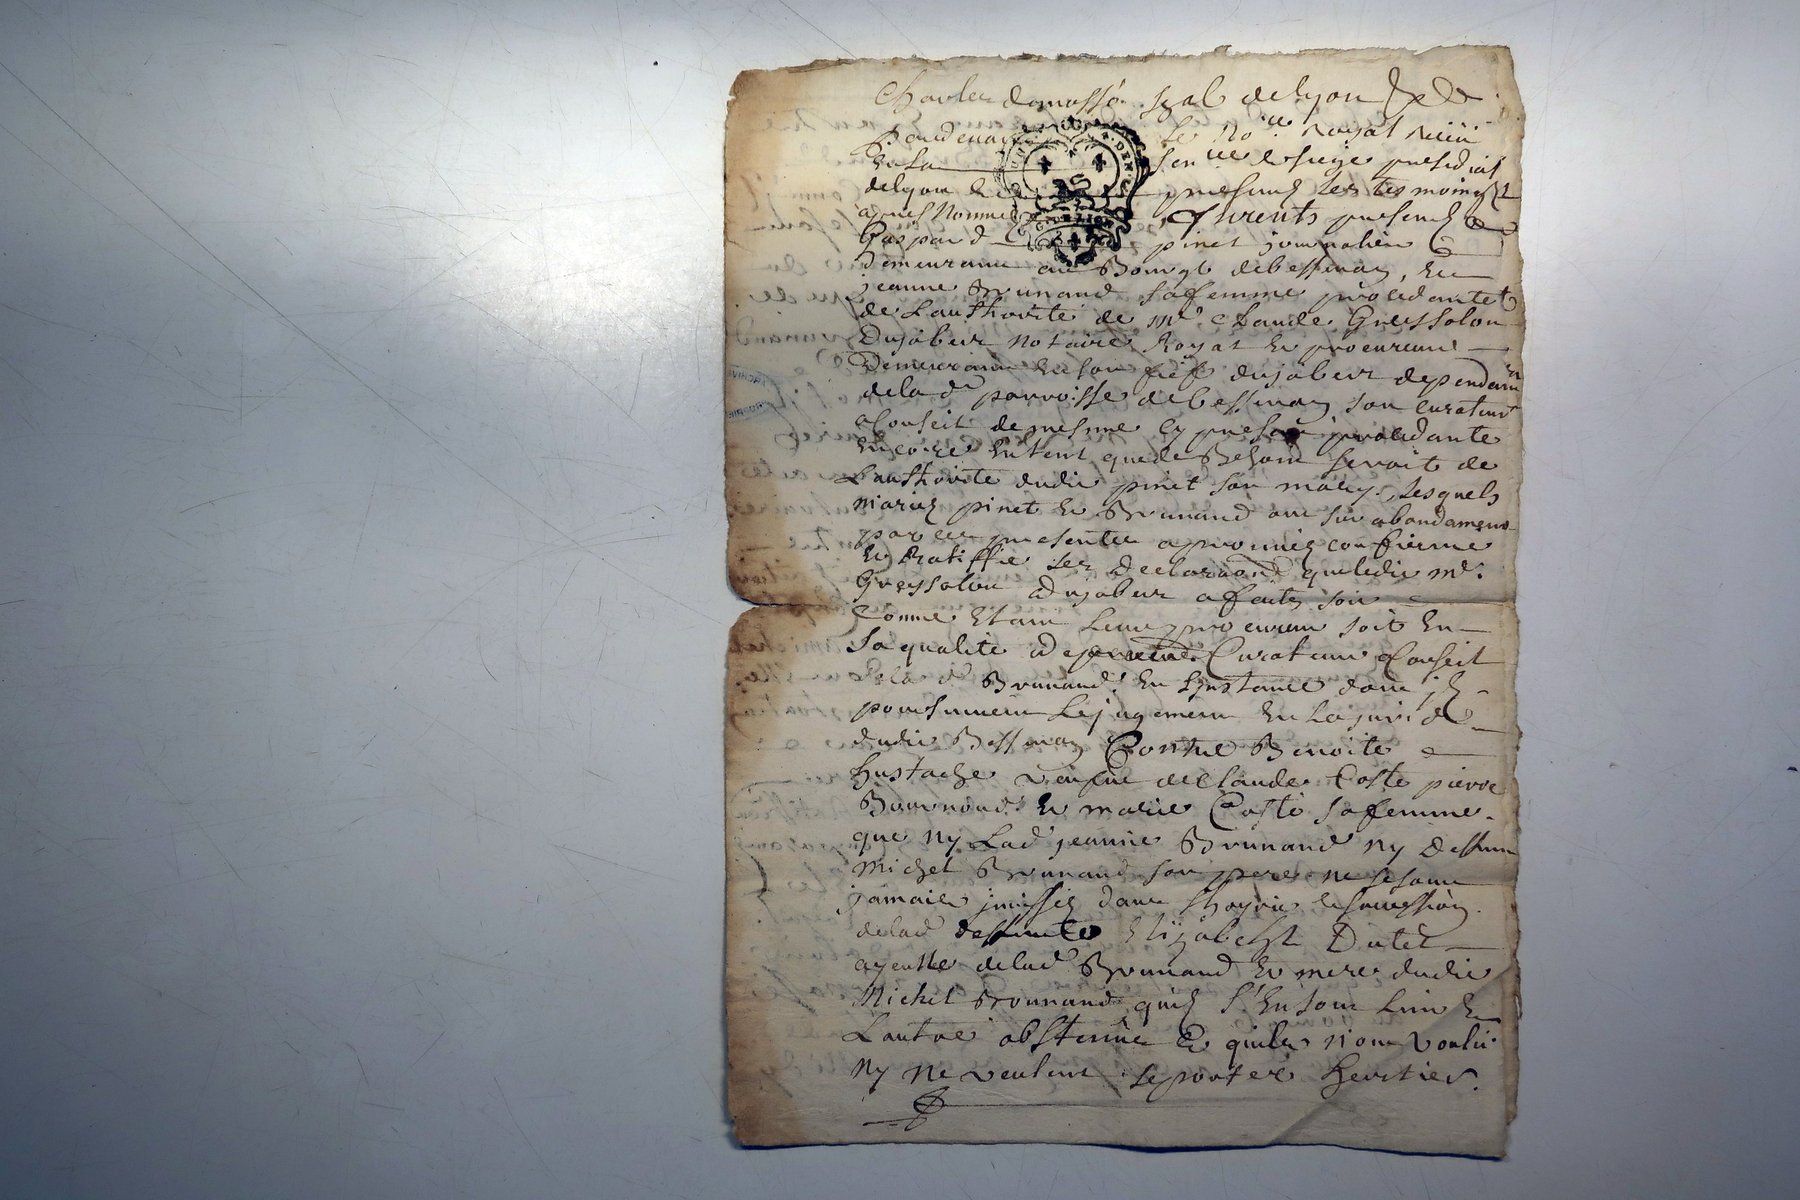 Charles damassé sgal delyon
Pardevant le no.re royal
En la sen.cée & siege presidial
delyon & presens les tesmoings
apres nommes furents presens
Gaspard pinet journalier
demeurant au Bourgt debessenay, Et
jeanne Brunand sa femme procedante
de L'authorité de M.e Claude Greysolon
Dujabeir notaire Royal Et procureur
Demeurant En son fief dujabeir dependant
de la d. parroisse debessenay son curateur
a Conseit de mesme Cy present procedante
Encore En tent que de Besoin seroit de
L'authorité dudit pinet son mary, Lesquels
mariez pinet Et Brunand ont sur abondament
par ces presentes aprouvéz confirmé
Et Ratiffié les declaraôns que ledit M.e
Greysolon dujabeir a faites soit
Comme Etant Leur procureur soit En
sa qualité de Curateur a Conseit
de la d. Brunand En Linstance dont jl
poursuivent Lejugement En Lajurid.
dudit Bessenay Contre Benoite
Eustache veufve de Claude Coste pierre
Bournond Et marie Coste sa femme
que ny Lad. jeanne Brunand ny deffunt
Michel Brunand son pere ne se sont
jamais jmissez dans Lhoyrie & succession
delad. deffunte Elizabeth Dutel
ayeulle delad. Brunand Et mere dudit
Michel Brunand quils s'En sont Lun Et
Lautre abstenüe Et quils n'ont voulu
ny ne veulent se porter heritier.